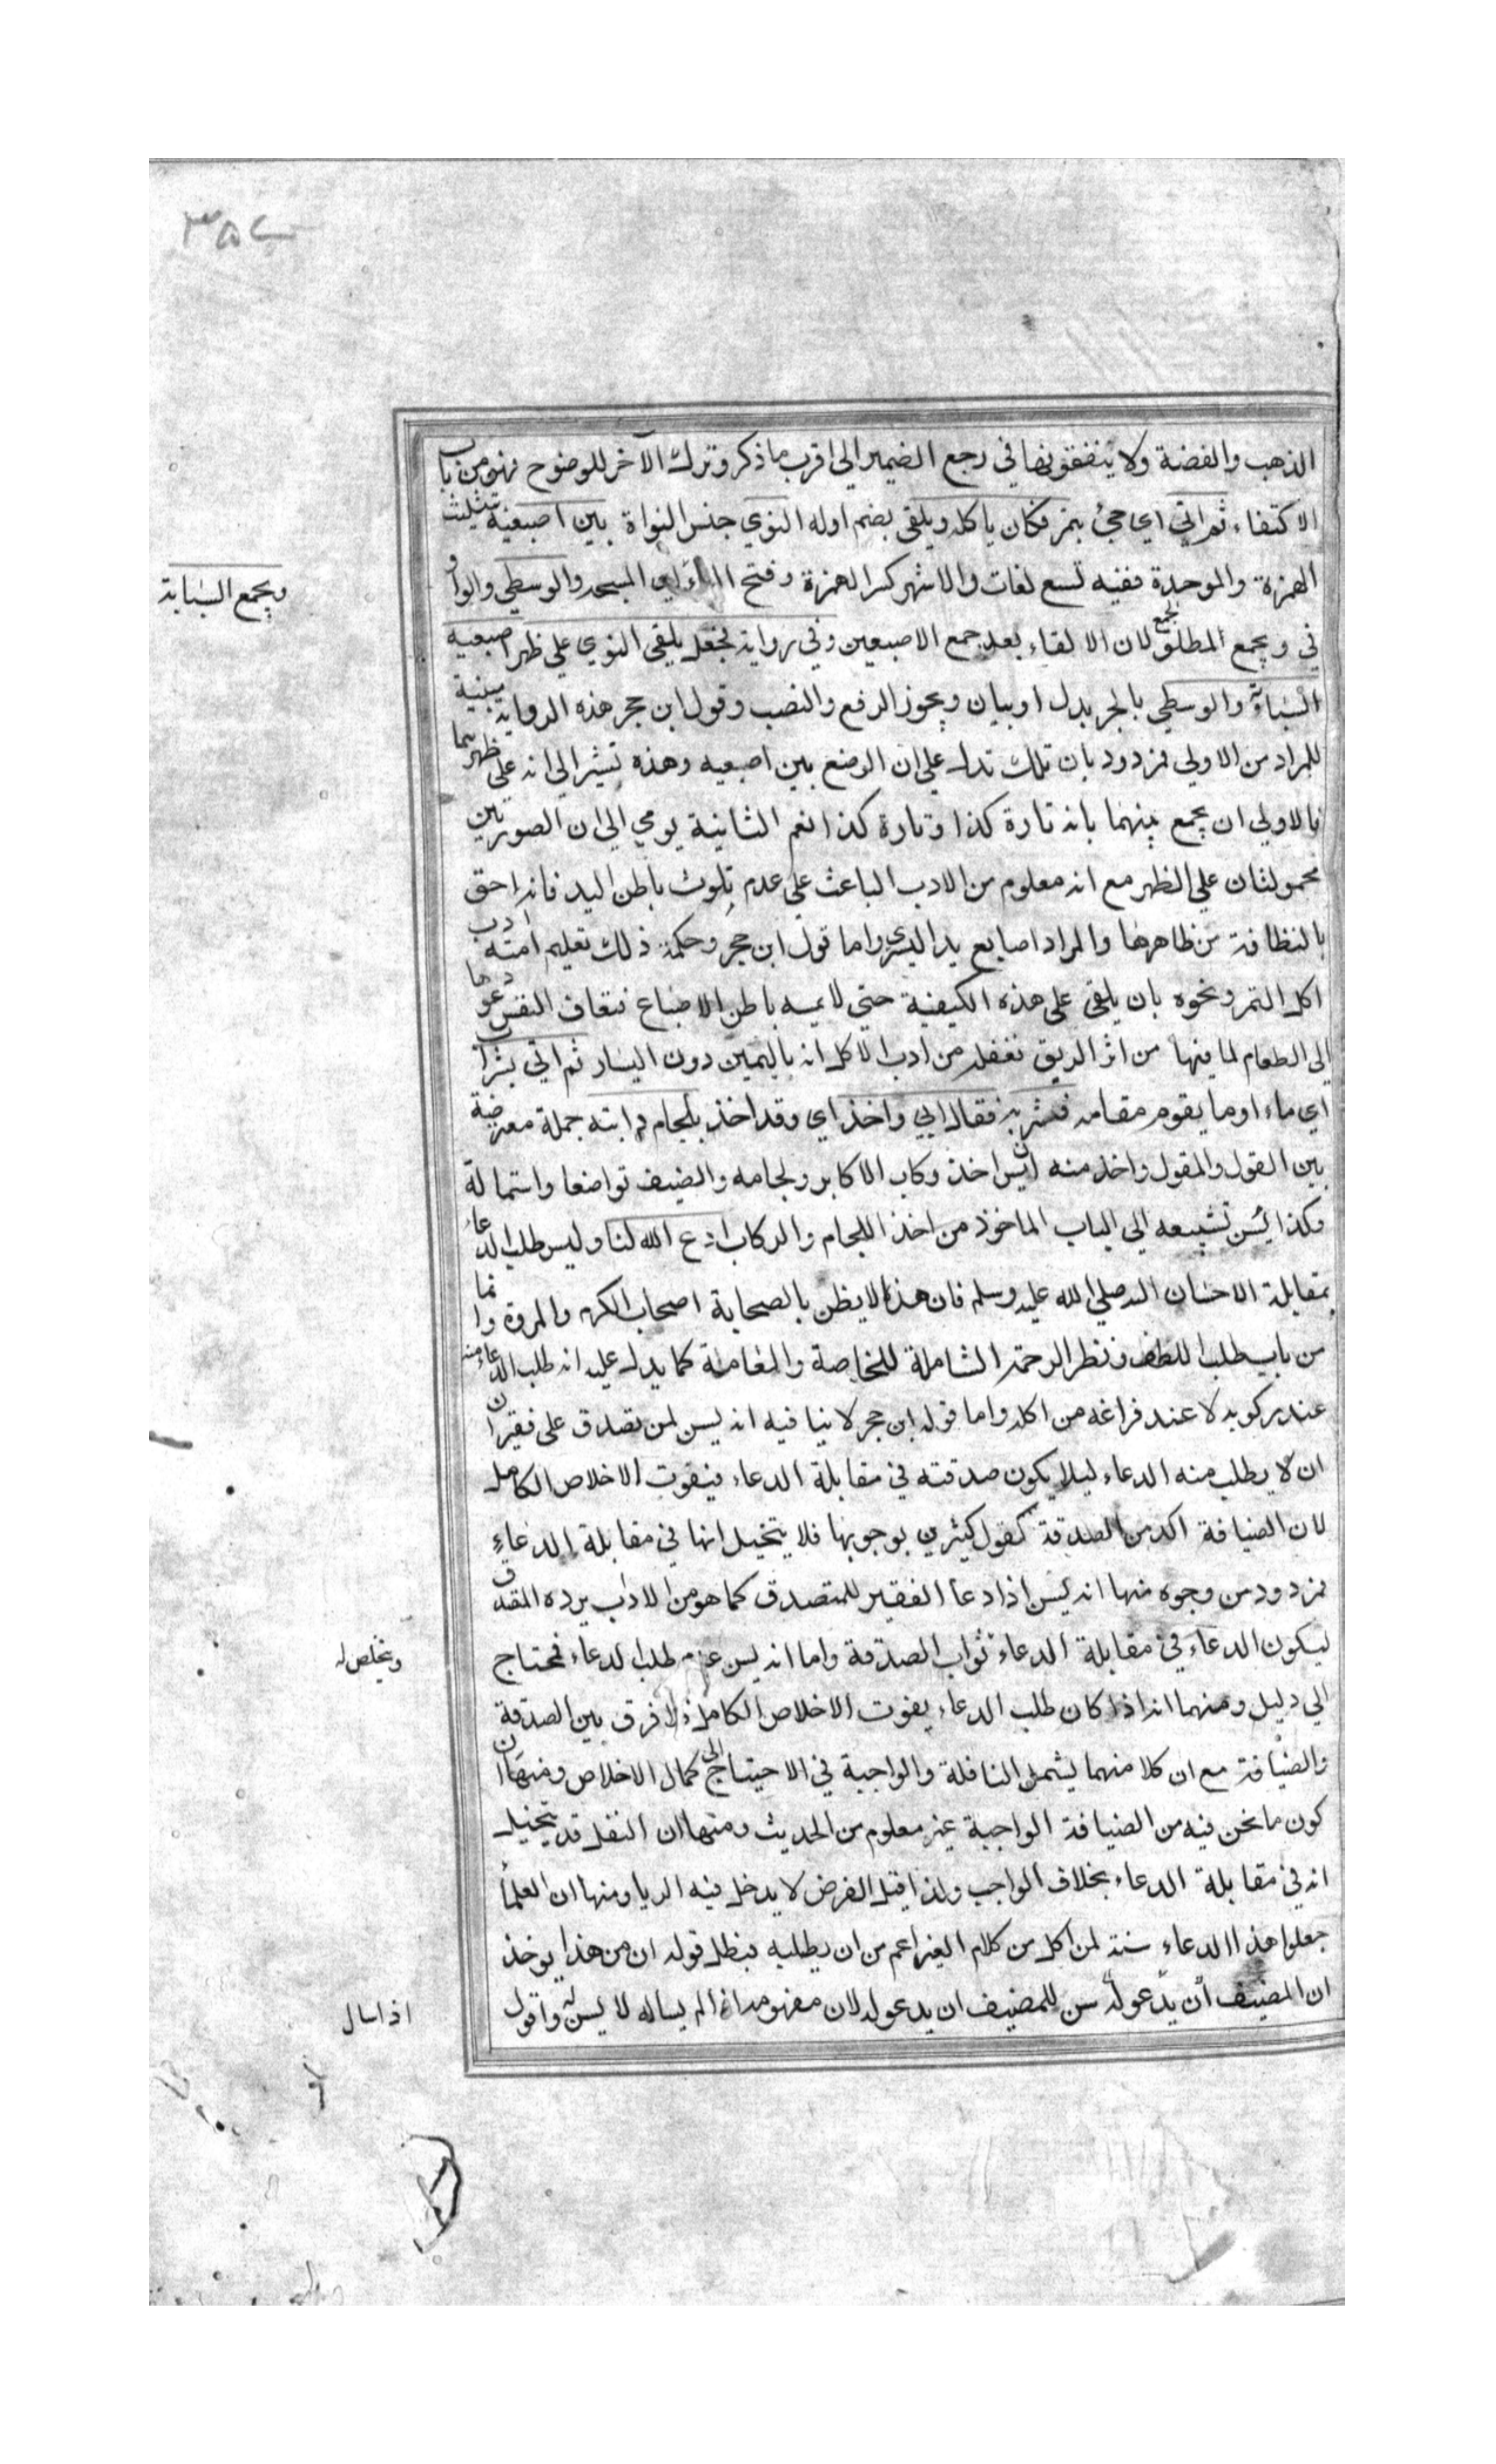 ٣٥٧
الذهب والفضة ولا ينفقونها في رجع الضمير الى اقرب ما ذكر وترك الآخر للوضوح فهو من باب
الاكتفاء ثم اتي اي جيئ بتمر فكان ياكله ويلقي بضم اوله النوي جنس النواة بين اصبعيه بتثليث
الهمزة والموحدة ففيه تسع لغات والاشهر كسر الهمزة وفتح الباء اي المسبحة والوسطي والواو
ويجمع السبابة
في ويجمع لمطلق الجمع لان الالقاء بعد جمع الاصبعين وفي رواية فجعل يلقي النوي علي ظهر اصبعيه
السبابة والوسطي بالجر بدل او بيان ويجوز الرفع والنصب وقول ابن حجر هذه الرواية مبينة
للمراد من الاولي مردود بان تلك تدل علي ان الوضع بين اصبعيه وهذه تشير الي انه علي ظهرهما
فالاولي ان يجمع بينهما بانه تارة كذا وتارة كذا نعم الثانية يومي الي ان الصورتين
محمولتان علي الظهر مع انه معلوم من الادب الباعث علي عدم تلوث باطن اليد فانه احق
بالنظافة من ظاهرها والمراد اصابع يد اليسري واما قول ابن حجر وحكمة ذلك تعليم امته ادب
اكل التمر ونحوه بان يلقي علي هذه الكيفية حتي لا يمسه باطن الاصابع فتعاف النفس عودها
الي الطعام لما فيها من اثر الريق فغفلة من ادب الاكل انه باليمين دون اليسار ثم اتي بشراب
اي ماء او ما يقوم مقامه فشربه فقال ابي واخذ اي وقد اخذ بلجام دابته جملة معترضة
بين القول والمقول واخذ منه انه يسن اخذ ركاب الاكابر ولجامه والضيف تواضعا واستمالة
وكذا يسن تشييعه الي الباب الماخوذ من اخذ اللجام والركاب ادع الله لنا وليس طلب الدعاء
بمقابلة الاحسان اليه صلي الله عليه وسلم فان هذا لا يظن بالصحابة اصحاب الكرم والمروة وانما
من باب طلب اللطف ونظر الرحمة الشاملة للخاصة والعامة كما يدل عليه انه طلب الدعاء منه
عند ركوبه لا عند فراغه من اكله واما قول ابن حجر لا ينافيه انه يسن لمن تصدق علي فقير ان
ان لا يطلب منه الدعاء ليلا يكون صدقته في مقابلة الدعاء فيفوت الاخلاص الكامل
لان الضيافة اكد من الصدقة كقول كثيرين بوجوبها فلا يتخيل انها في مقابلة الدعاء
فمردود من وجوه منها انه يسن اذا دعا الفقير للمتصدق كما هو من الاداب يرده المتصدق
ليكون الدعاء في مقابلة الدعاء ثواب الصدقة واما انه يسن عدم طلب الدعاء فمحتاج
ويخلص له
الي دليل ومنهما انه اذا كان طلب الدعاء يفوت الاخلاص الكامل فلا فرق بين الصدقة
والضيافة مع ان كلا منهما يشمل النافلة والواجبة في الاحتياج الي كمال الاخلاص ومنها ان
كون ما نحن فيه من الضيافة الواجبة غير معلوم من الحديث ومنها ان النفل قد يتخيل
انه في مقابلة الدعاء بخلاف الواجب ولذا قيل الفرض لا يدخل فيه الريا ومنها ان العلماء
جعلوا هذا الدعاء سنة لمن اكل من كلام الغير اعم من ان يطلبه فبطل قوله ان من هذا يوخذ
ان المضيف ان يدعو له سن للمضيف ان يدعو له لان مفهومه انه اذا لم يساله لا يسن له واقول
اذا سال